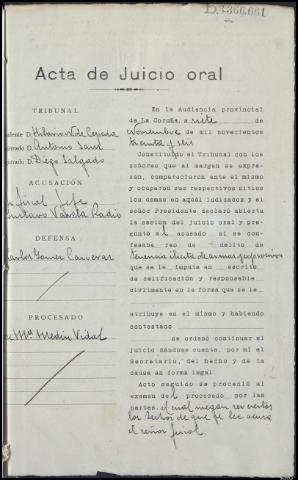 D.3366.661
Acta de Juicio oral
TRIBUNAL
sidente D. Hilario N. de Cepeda
istrado D. Antonio Sanz
istrado D. Diego Salgado
ACUSACIÓN
Fiscal Jefe
Gustavo Varela Radio
DEFENSA
Carlos Gomez Canveras
PROCESADO
Mª Medin Vidal
En la Audiencia provincial
de La Coruña, a siete de
Noviembre de mil novecientos
treinta y seis
Constituido el Tribunal con los
señores que al margen se expre-
san, comparecieron ante el mismo
y ocuparon sus respectivos sitios
los demas en aquel indicados y el
señor Presidente declaró abierta
la sesión del juicio oral y pre-
guntó al acusado si se con-
fesaba reo de delito de
tenencia ilicita de armas y explosivos
que se le imputa en escrito
de calificación y responsable
civilmente en la forma que se le
atribuye en el mismo y habiendo
contestado
se ordenó continuar el
juicio dándose cuenta, por mi el
Secretario, del hecho y de la
causa en forma legal.
Acto seguido se procedió al
examen del procesado por las
partes, el cual niegan ser ciertos
los hechos de que le acusa
el señor fiscal.